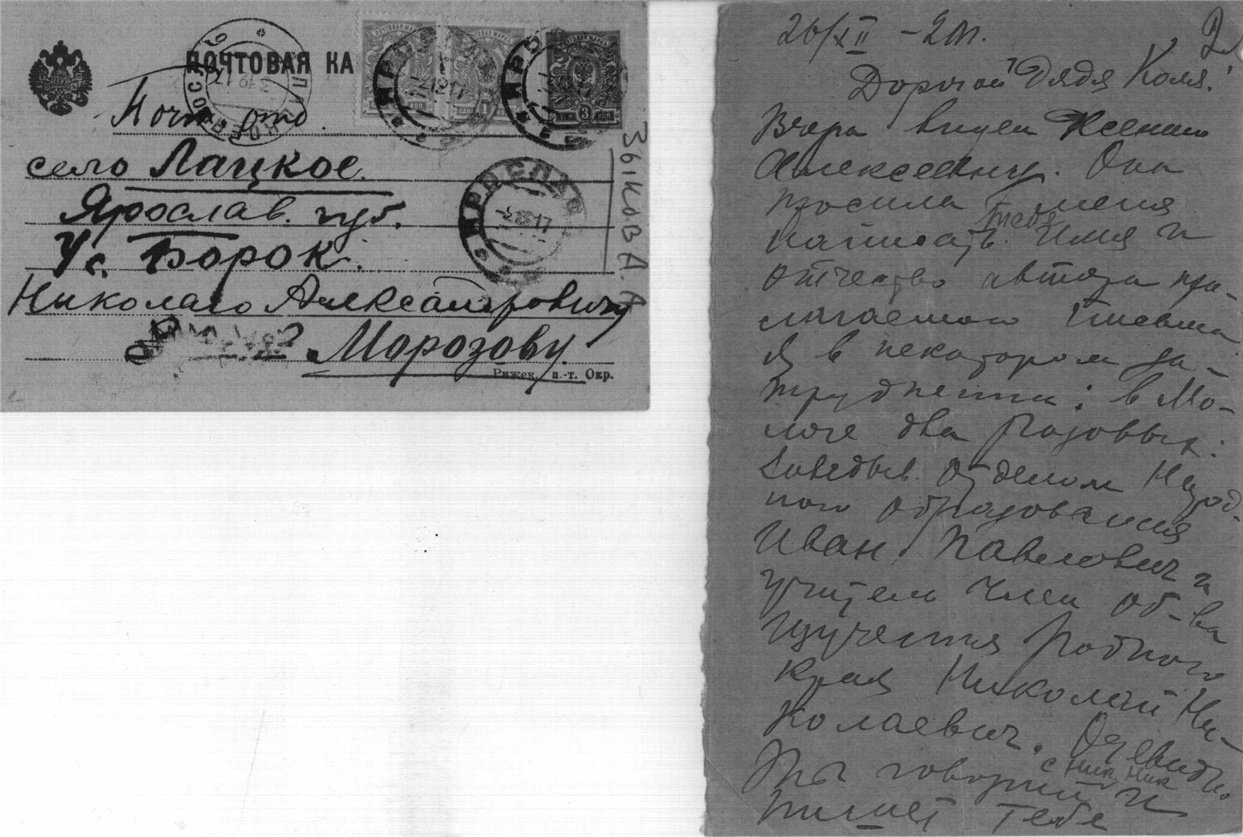 ПОЧТОВАЯ КА
Почт. отд.
село Лацкое.
Ярослав. губ.
Ус. Борок.
Николаю Александровичу
Морозову.
Рижск. п.-т. Окр.
ЗЫКОВА А
3
26/XII – 20 г.
Дорогой Дядя Коля!
Вчера видел Ксению
Алексеевну. Она
просила меня
тебе
написать имя и
отчество автора при-
лагаемого письма
Я в некотором за-
труднении: в Мо-
логе два
Заведыв. отделом Народ-
ного образования
Иван Павлович и
учитель член об-ва
изучения родного
края Николай Ни-
колаевич. Очевидно
с Ник. Ник
ты говорил и
пишет тебе